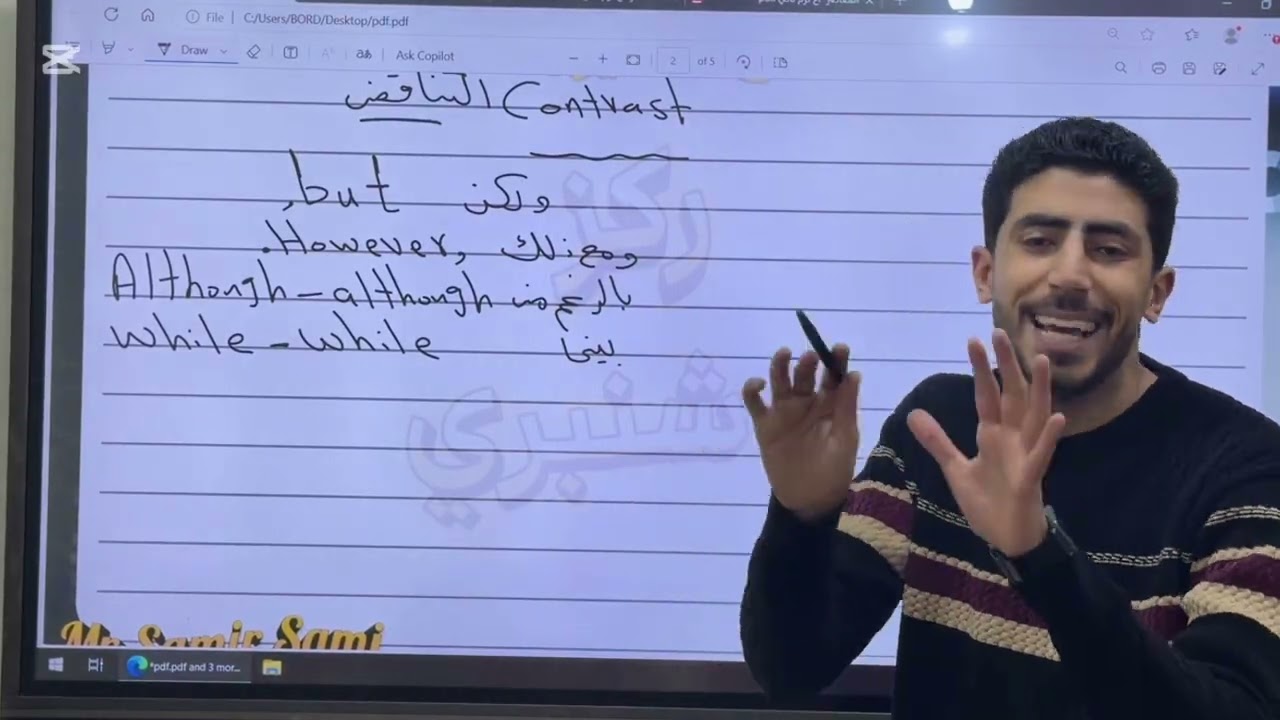 File C:/Users/BORD/Desktop/pdf.pdf
Draw Ask Copilot 2 of 5
Contrast التناقض
,but ولكن
.However, ومع ذلك
Although - although بالرغم من
While - while بينما
ركز
شنبري
Mr Samir Sami
*pdf.pdf and 3 mor...